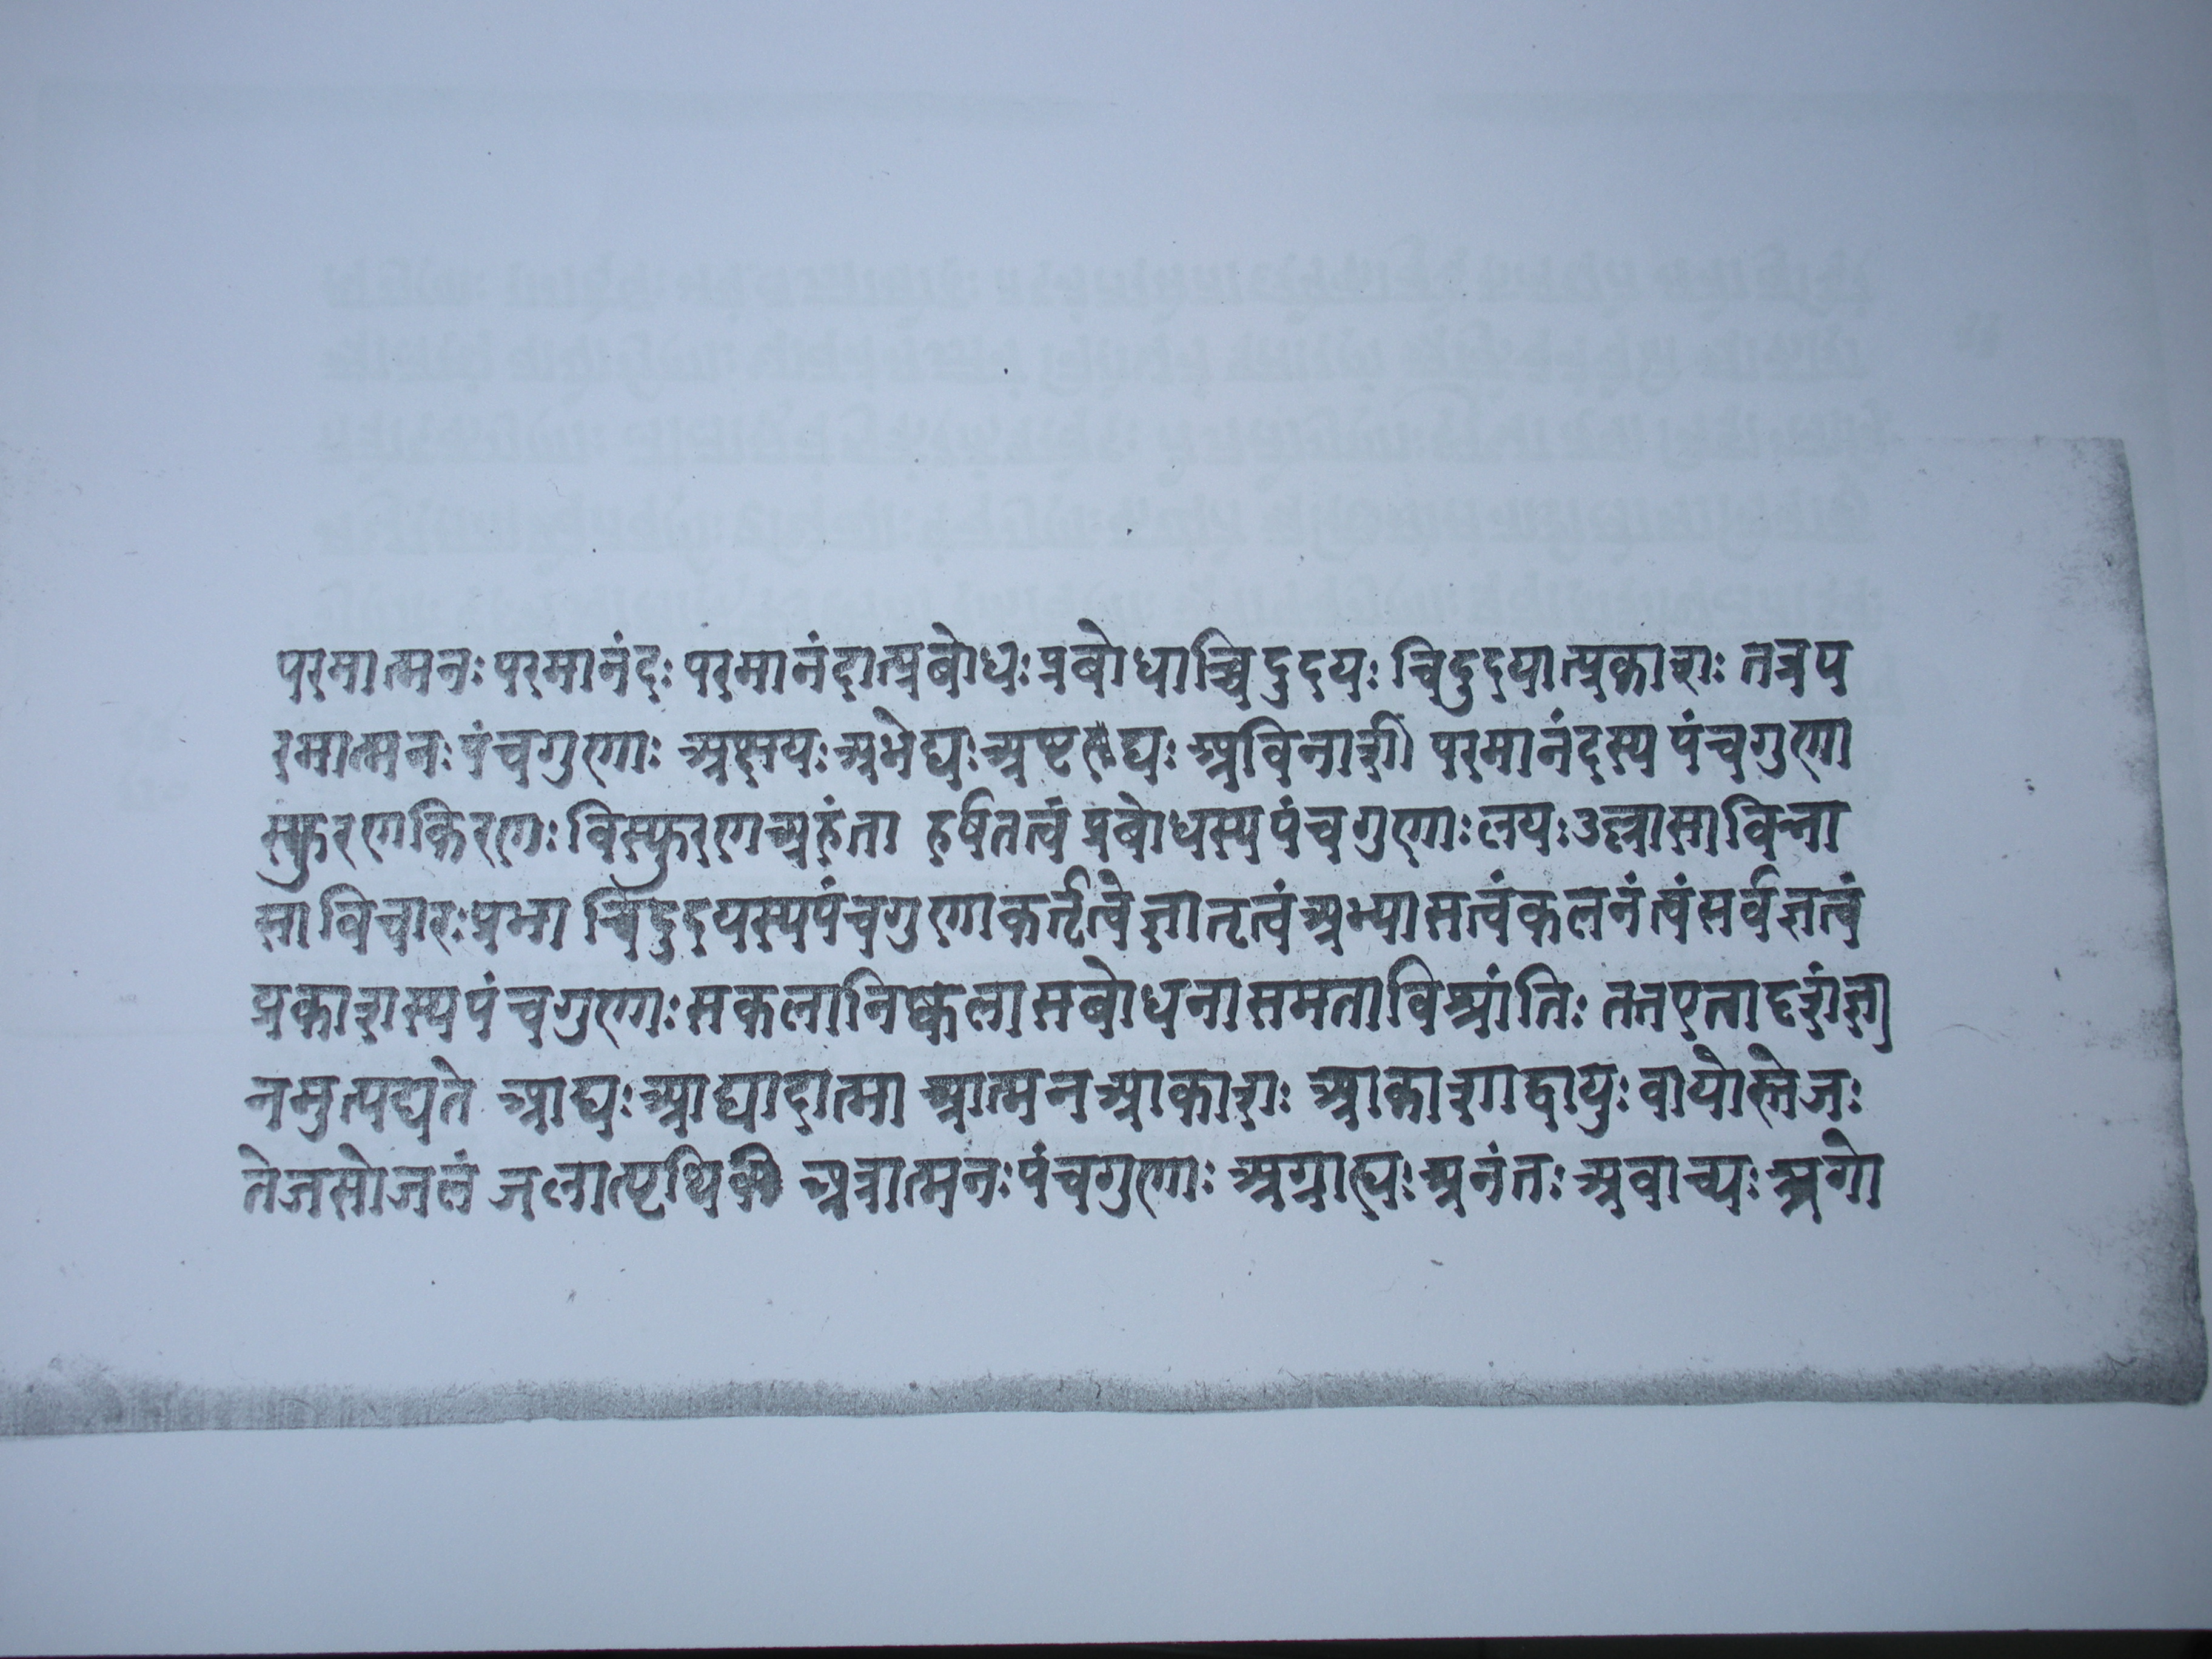 परमात्मनः परमानंदः परमानंदात्प्रबोधः प्रबोधाच्चिदुदयः चिदुदयात्प्रकाशः तत्रप
रमात्मनः पंचगुणाः अक्षयः अभेद्यः अविनाशी परमानंदस्य पंचगुणा
स्फुरणकिरणः विस्फुरणअहंता हर्षितत्वं प्रबोधस्य पंचगुणाः लयः
सा विचारः प्रभा चिदुदयस्यपंचगुणाकर्तृत्वं ज्ञातृत्वं अभ्यासत्वंकलनंत्वं सर्वज्ञत्वं
प्रकाशस्य पंचगुणाः सकलानिष्कलासबोधनासमताविश्रांतिः ततएतादृशंज्ञा
नमुत्पद्यते आद्यः आद्यादात्मा आत्मनआकाशः आकाशाद्वायुः वायोस्तेजः
तेजसोजलं जलात्पृथिवी अत्रात्मनः पंचगुणाः अग्राह्यः अनंतः अवाच्यः अगो